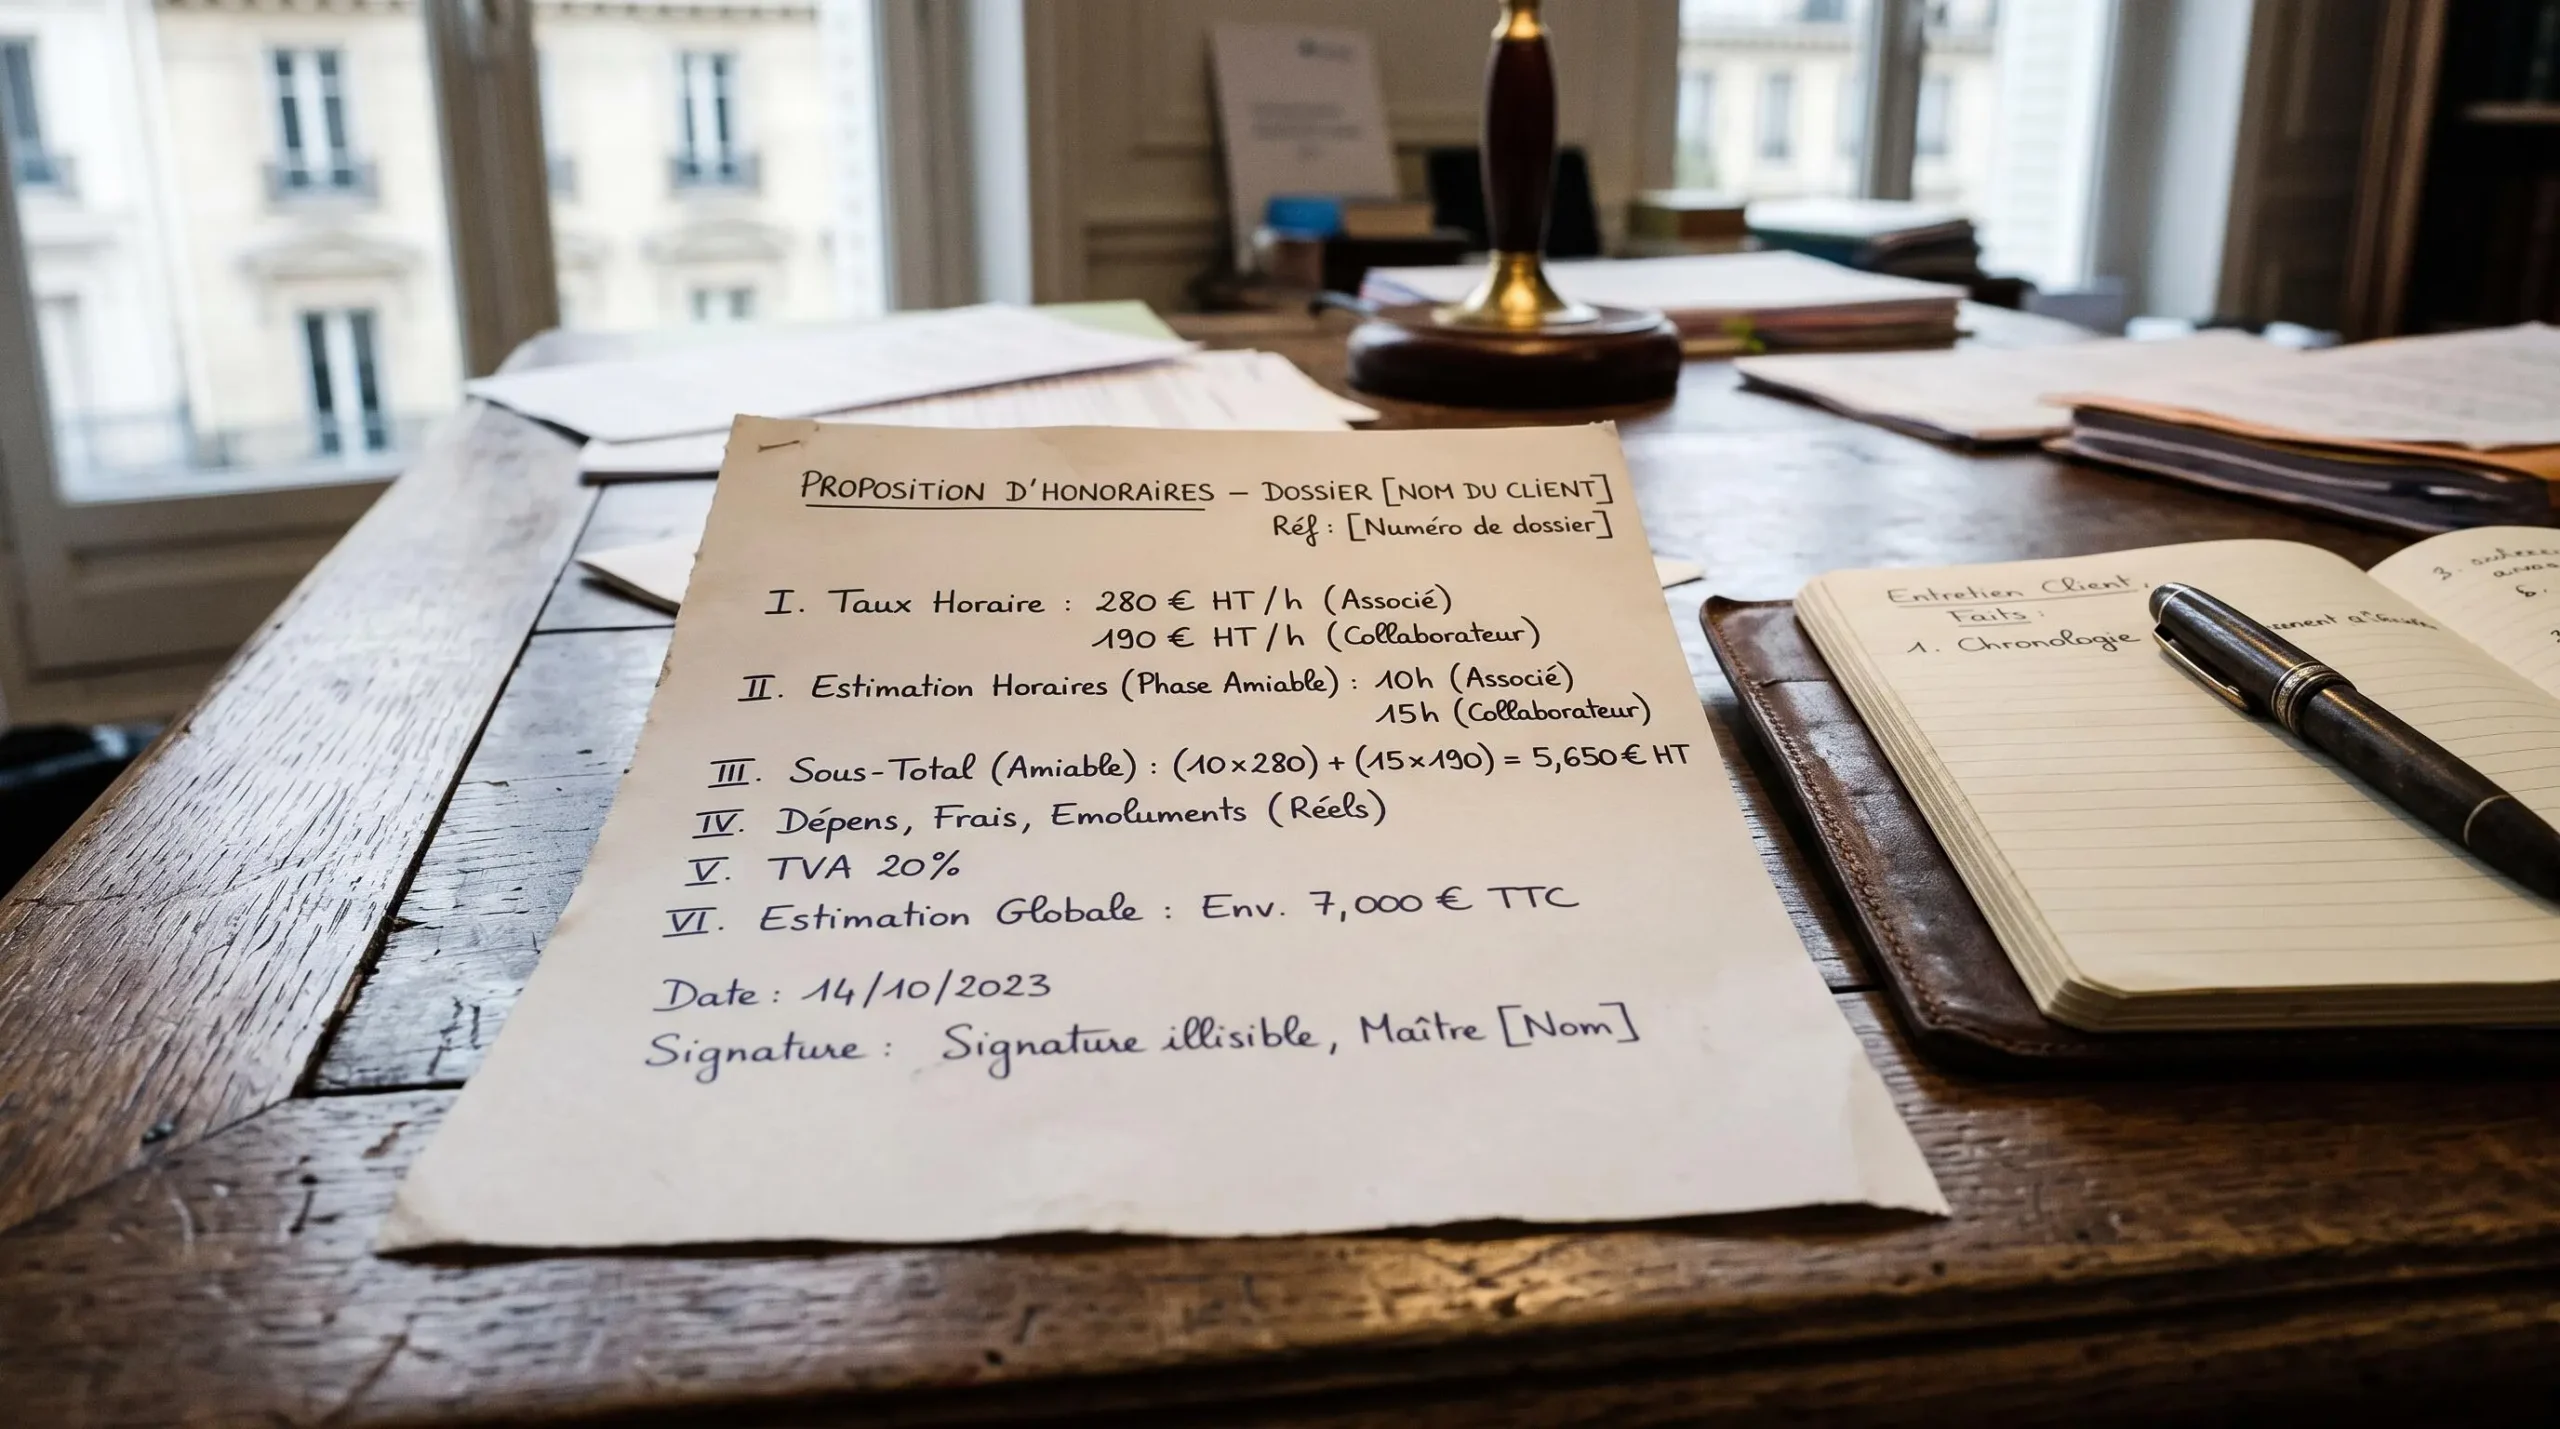 PROPOSITION D'HONORAIRES – DOSSIER [NOM DU CLIENT]
Réf : [Numéro de dossier]
I. Taux Horaire : 280 € HT/h (Associé)
190 € HT/h (Collaborateur)
II. Estimation Horaires (Phase Amiable) : 10h (Associé)
15h (Collaborateur)
III. Sous-Total (Amiable) : (10×280) + (15×190) = 5,650€ HT
IV. Dépens, Frais, Emoluments (Réels)
V. TVA 20%
VI. Estimation Globale : Env. 7,000 € TTC
Date : 14/10/2023
Signature : Signature illisible, Maître [Nom]
Entretien Client,
Faits :
1. Chronologie
3.
6.